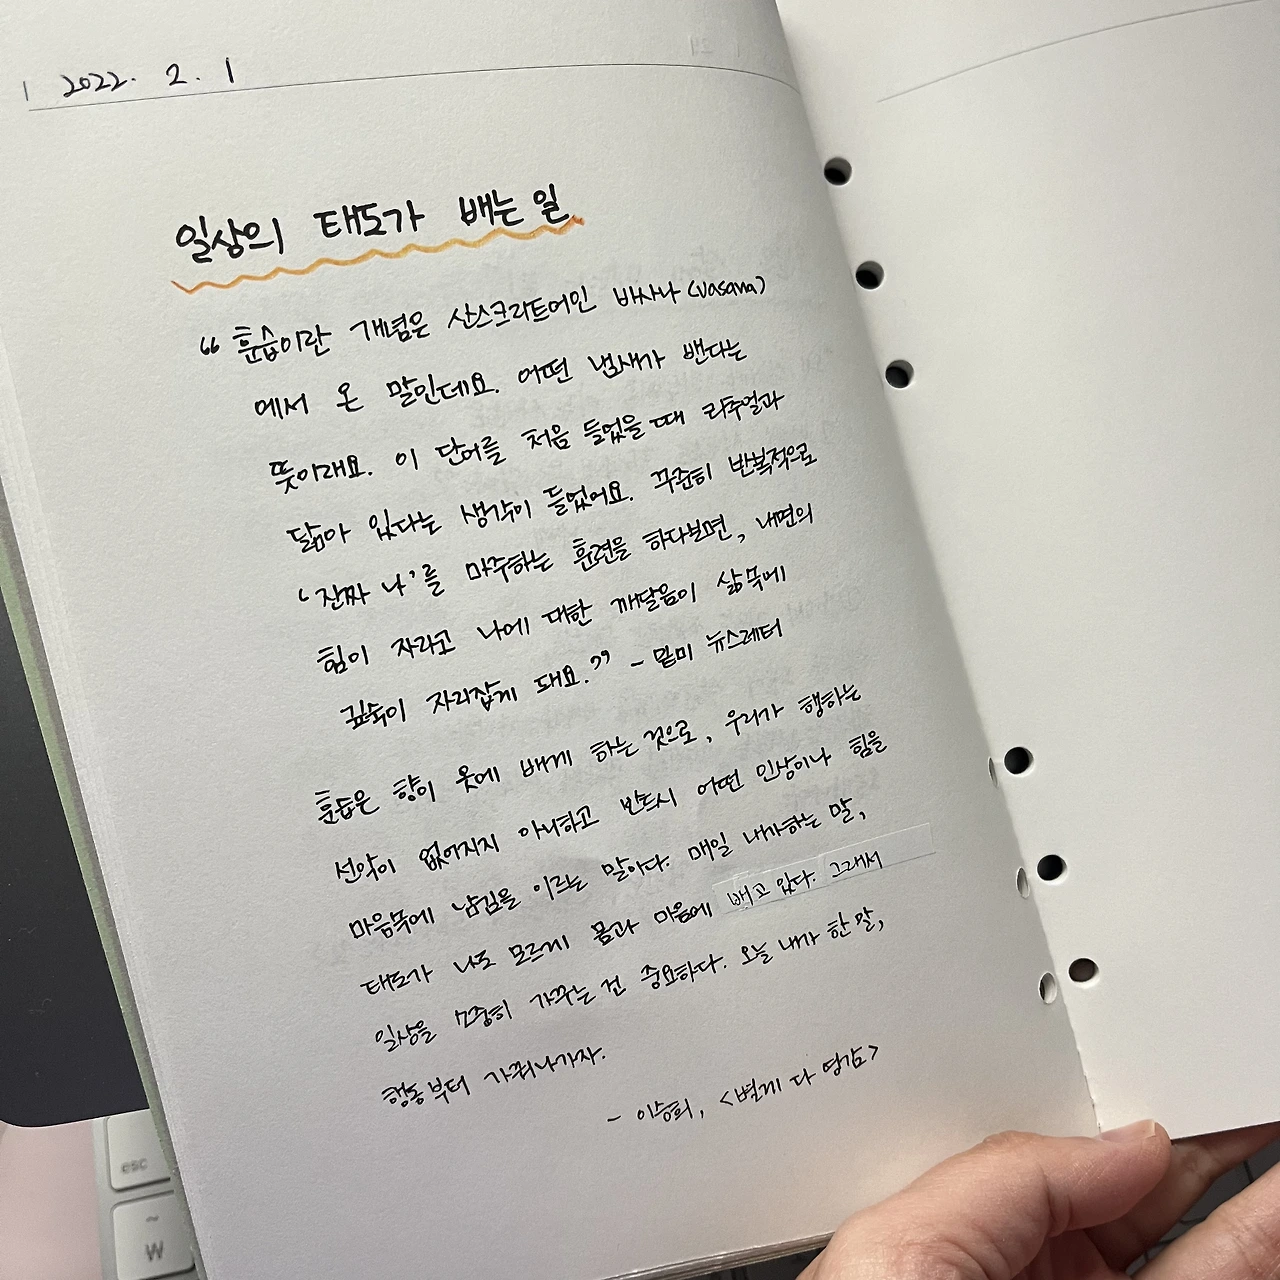 2022. 2. 1
일상의 태도가 배는 일
“훈습이란 개념은 산스크리트어인 바사나(vasana)
에서 온 말인데요. 어떤 냄새가 밴다는
뜻이래요. 이 단어를 처음 들었을 때 리추얼과
닮아 있다는 생각이 들었어요. 꾸준히 반복적으로
‘진짜 나’를 마주하는 훈련을 하다보면, 내면의
힘이 자라고 나에 대한 깨달음이 삶 속에
깊숙이 자리잡게 돼요.” - 밑미 뉴스레터
훈습은 향이 옷에 배게 하는 것으로, 우리가 행하는
선악이 없어지지 아니하고 반드시 어떤 인상이나 힘을
마음속에 남김을 이르는 말이다. 매일 내가하는 말,
태도가 나도 모르게 몸과 마음에 배고 있다. 그래서
일상을 소중히 가꾸는 건 중요하다. 오늘 내가 한 말,
행동부터 가꿔나가자.
- 이승희, <별게 다 영감>
esc
~
₩